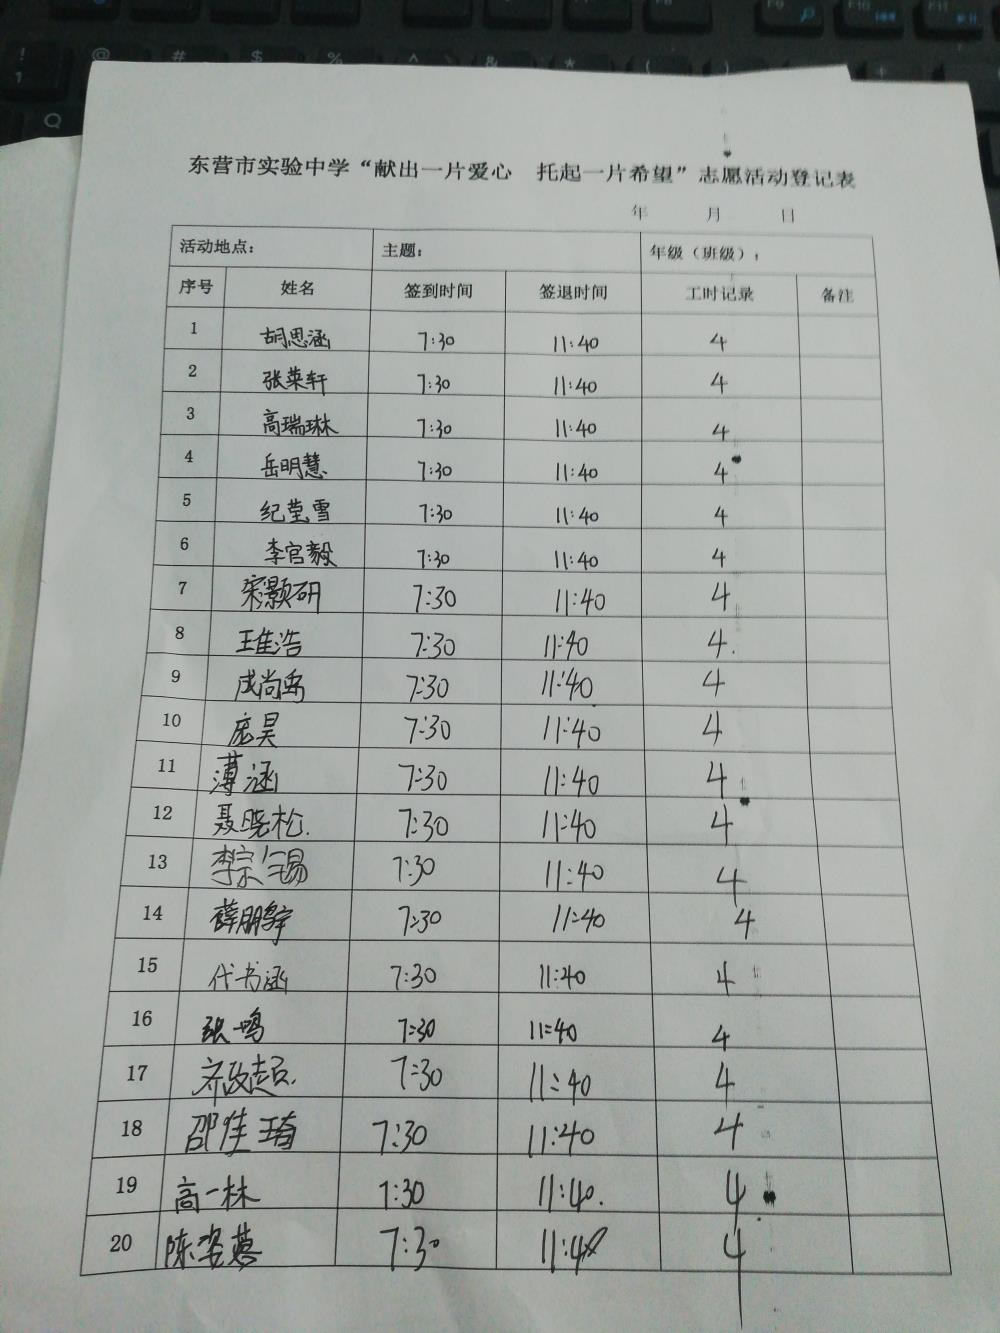 东营市实验中学“献出一片爱心 托起一片希望”志愿活动登记表
年 月 日
活动地点： 主题： 年级（班级）：
序号 姓名 签到时间 签退时间 工时记录 备注
1 胡思涵 7:30 11:40 4
2 张棻轩 7:30 11:40 4
3 高瑞琳 7:30 11:40 4
4 岳明慧 7:30 11:40 4
5 纪莹雪 7:30 11:40 4
6 李官毅 7:30 11:40 4
7 宋颢研 7:30 11:40 4
8 王佳浩 7:30 11:40 4.
9 成尚禹 7:30 11:40 4
10 庞昊 7:30 11:40 4
11 薄涵 7:30 11:40 4
12 聂晓松. 7:30 11:40 4
13 李宗锡 7:30 11:40 4
14 薛鹏宇 7:30 11:40 4
15 代书涵 7:30 11:40 4
16 张鸣 7:30 11:40 4
17 齐政超. 7:30 11:40 4
18 邵佳琦 7:30 11:40 4
19 高一林 7:30 11:40. 4
20 陈姿慧 7:30 11:40 4